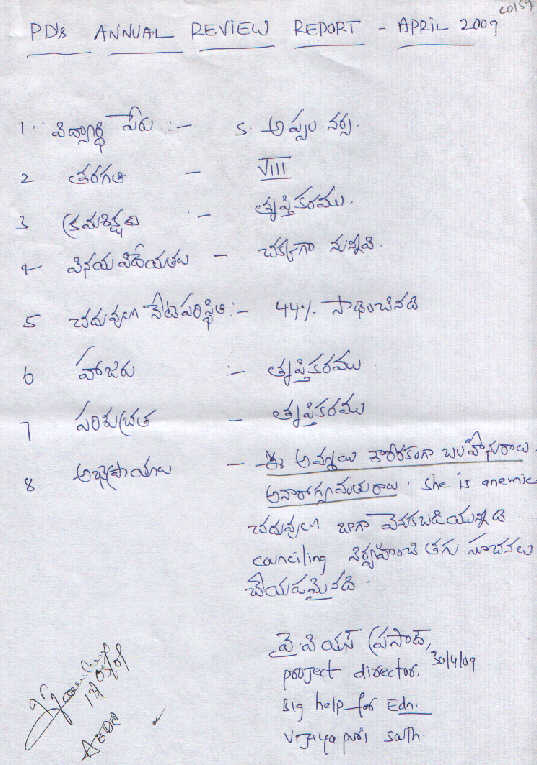 PD's ANNUAL REVIEW REPORT - APRIL 2009
1. విద్యార్థి పేరు :- S. అప్పల నర్స.
2 తరగతి - VIII
3 క్రమశిక్షణ - తృప్తికరము.
4 వినయ విధేయతలు - చక్కగా వున్నవి.
5 చదువులో నేటి పరిస్థితి :- 44% సాధించినది
6 హాజరు :- తృప్తికరము
7 పరిశుభ్రత - తృప్తికరము
8 అభిప్రాయాలు - ఈ అమ్మాయి శారీరకంగా బలహీనురాలు.
అనారోగ్యవంతురాలు. she is anemic
చదువులో బాగా వెనకబడియున్నది
counciling నిర్వహించి తగు సూచనలు
చేయడమైనది.
వై పి యస్ ప్రసాద్,
project director. 30/4/09
Big help for Edn.
Vijayapuri south